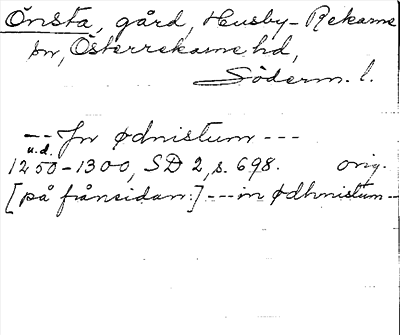 Önsta, gård, Husby-Rekarne
sn, Österrekarne hd,
Söderm. l.
--- Jn ødnistum ---
u.d.
1250-1300, SD 2, s. 698. orig.
[på frånsidan:] --- in ødhnistum --